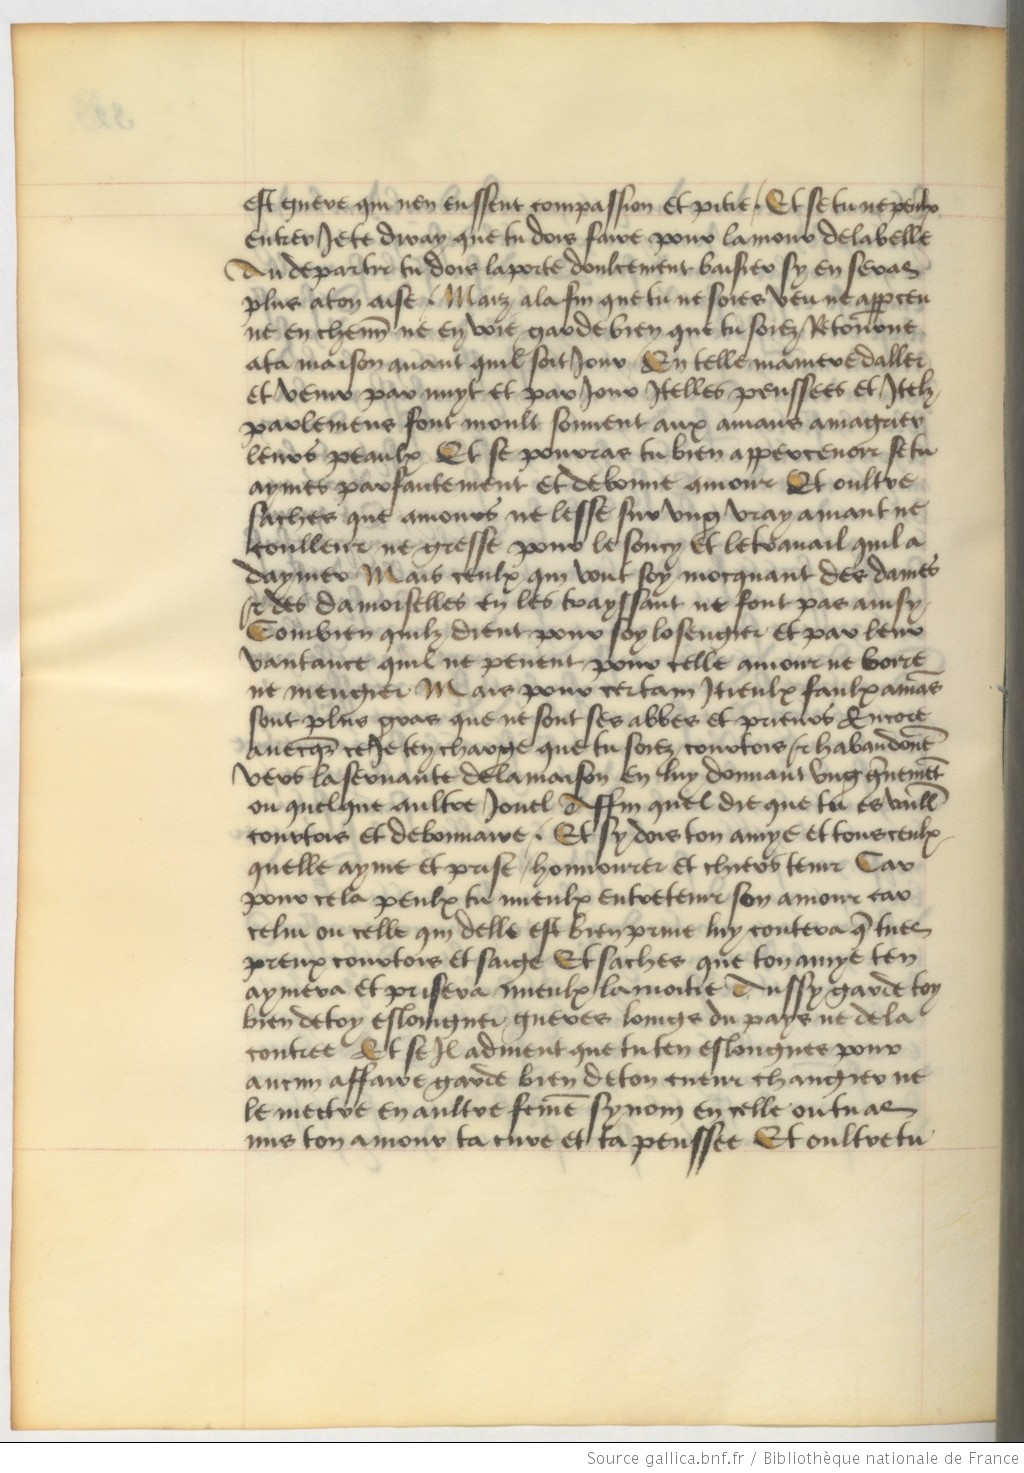 est guere qui nen eussent compassion et pitie . Et se tu ne peulx
entrer Je te diray que tu dois faire pour lamour de la belle
Au departir tu dois la porte doulcement baisier sy en seras
plus a ton aise . Maiz a la fin que tu ne soies veu ne apperceu
ne en chemin ne en voie garde bien que tu soiez Retourne
a ta maison auant quil soit Jour En telle maniere daller
et venir par nuyt et par Jour Itelles penssees et Itelz
parlemens font moult souuent aux amans amagrier
leurs peaulx Et se pourras tu bien appercenoir se tu
aymes parfaitement et de bonne amour Et oultre
saches que amours ne lesse sur vng vray amant ne
coulleur ne gresse pour le soucy et le trauail quil a
daymer Mais ceulx qui vont soy mocquant des dames
et des damoiselles en les trayssant ne font pas ainsy
Combien quilz dient pour soy losengier et par leur
vantance quil ne peuent pour celle amour ne boire
ne mengier Mais pour certain Itieulx faulx amans
sont plus gras que ne sont ses abbes et prieurs Encore
auecques ce Je ten charge que tu soiez courtois et habandonne
vers la seruante de la maison en luy donnant vng garnement
ou quelque aultre Jouel Affin quel die que tu es vaill
courtois et debonnaire . Et sy dois ton amye et tous ceulx
quelle ayme et prise honnourer et chiers tenir Car
pour cela peulx tu mieulx entretenir son amour car
celui ou celle qui delle est bien priue luy contera que tu es
preux courtois et saige Et saches que ton amye ten
aymera et prisera mieulx la moitie Aussy garde toy
bien de toy eslongner gueres loings du pays ne de la
contree Et se Il aduient que tu ten eslongnes pour
aucun affaire garde bien de ton cueur changier ne
le mectre en aultre feme sy nom en celle ou tu as
mis ton amour ta cure et ta penssee Et oultre tu
Source gallica.bnf.fr / Bibliothèque nationale de France